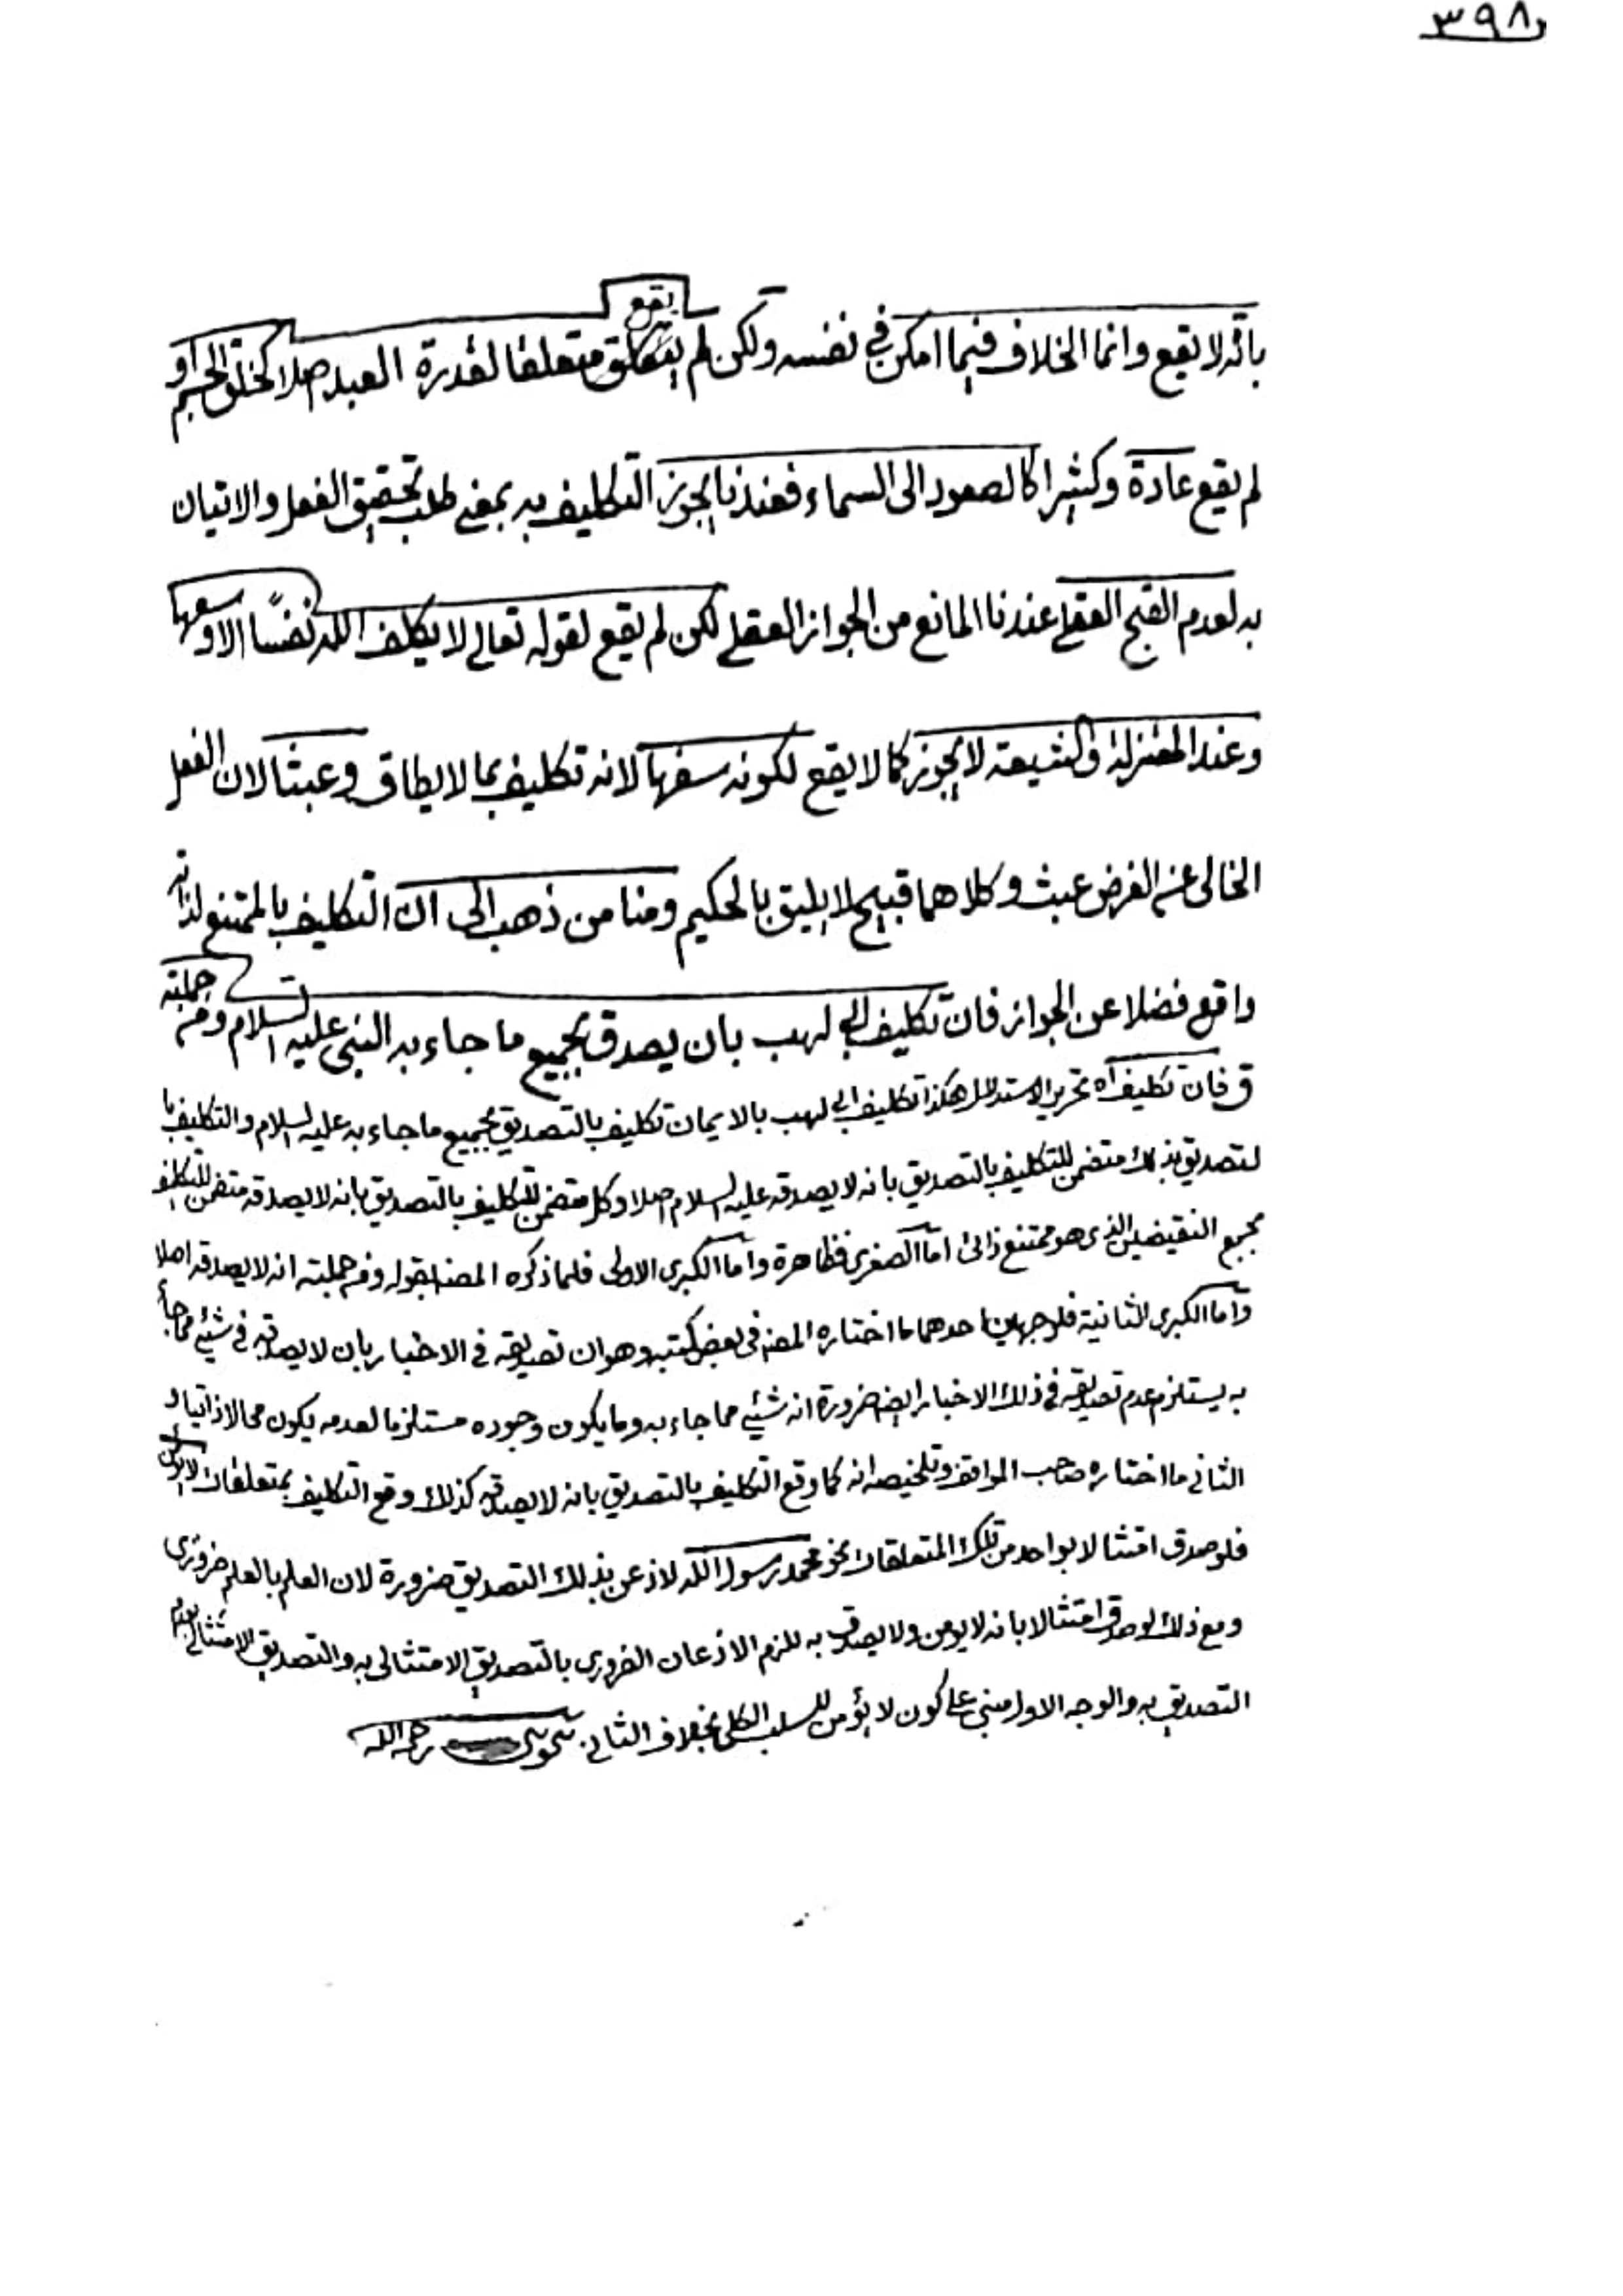 ٣٩٨
بانه لا يقع وانما الخلاف فيما امكن في نفسه ولكن لم يقع متعلقا لقدرة العبد اصلا كخلق الجسم او
لم يقع عادة وكثيرا كالصعود الى السماء فعندنا يجوز التكليف به بمعنى طلب تحقيق الفعل والاتيان
به لعدم القبح العقلي عندنا المانع من الجواز العقلي لكن لم يقع لقوله تعالى لا يكلف الله نفسًا الا وسعها
وعند المعتزلة والشيعة لا يجوز كما لا يقع لكونه سفها لانه تكليف بما لا يطاق وعبثا لان الفعل
الخالى عن الغرض عبث وكلاهما قبيح لا يليق بالحكيم ومنا من ذهب الى ان التكليف بالممتنع لذاته
واقع فضلا عن الجواز فان تكليف ابي لهب بان يصدق بجميع ما جاء به النبي عليه السلام ومن جملته
ق فان تكليف آه تحرير الاستدلال هكذا تكليف ابي لهب بالايمان تكليف بالتصديق بجميع ما جاء به عليه السلام والتكليف با
لتصديق بذلك متضمن للتكليف بالتصديق بانه لا يصدقه عليه السلام اصلا وكل متضمن للتكليف بالتصديق بانه لا يصدقه متضمن للتكليف
بجمع النقيضين الذى هو ممتنع ذاتى اما الصغرى فظاهرة واما الكبرى الاولى فلما ذكره المصنف بقوله ومن جملته انه لا يصدقه اصلا
واما الكبرى الثانية فلوجهين احدهما ما اختاره المصنف فى بعض كتبه وهو ان تصديقه فى الاخبار بان لا يصدقه فى شيئ مما جاء
به يستلزم عدم تصديقه فى ذلك الاخبار ايضا ضرورة انه شيئ مما جاء به وما يكون وجوده مستلزما لعدمه يكون محالا ذاتيا و
الثاني ما اختاره صاحب المواقف وتلخيصه انه كما وقع التكليف بالتصديق بانه لا يصدقه كذلك وقع التكليف بمتعلقات الايمان
فلو صدق امتثالا بواحد من تلك المتعلقات نحو محمد رسول الله لاذعن بذلك التصديق ضرورة لان العلم بالعلم ضرورى
ومع ذلك لو صدق امتثالا بانه لا يومن ولا يصدق به للزم الاذعان الضرورى بالتصديق الامتثالى به والتصديق الامتثالى بعدم
التصديق به والوجه الاول مبني على كون لا يؤمن للسلب الكلى بخلاف الثاني. رحمه الله